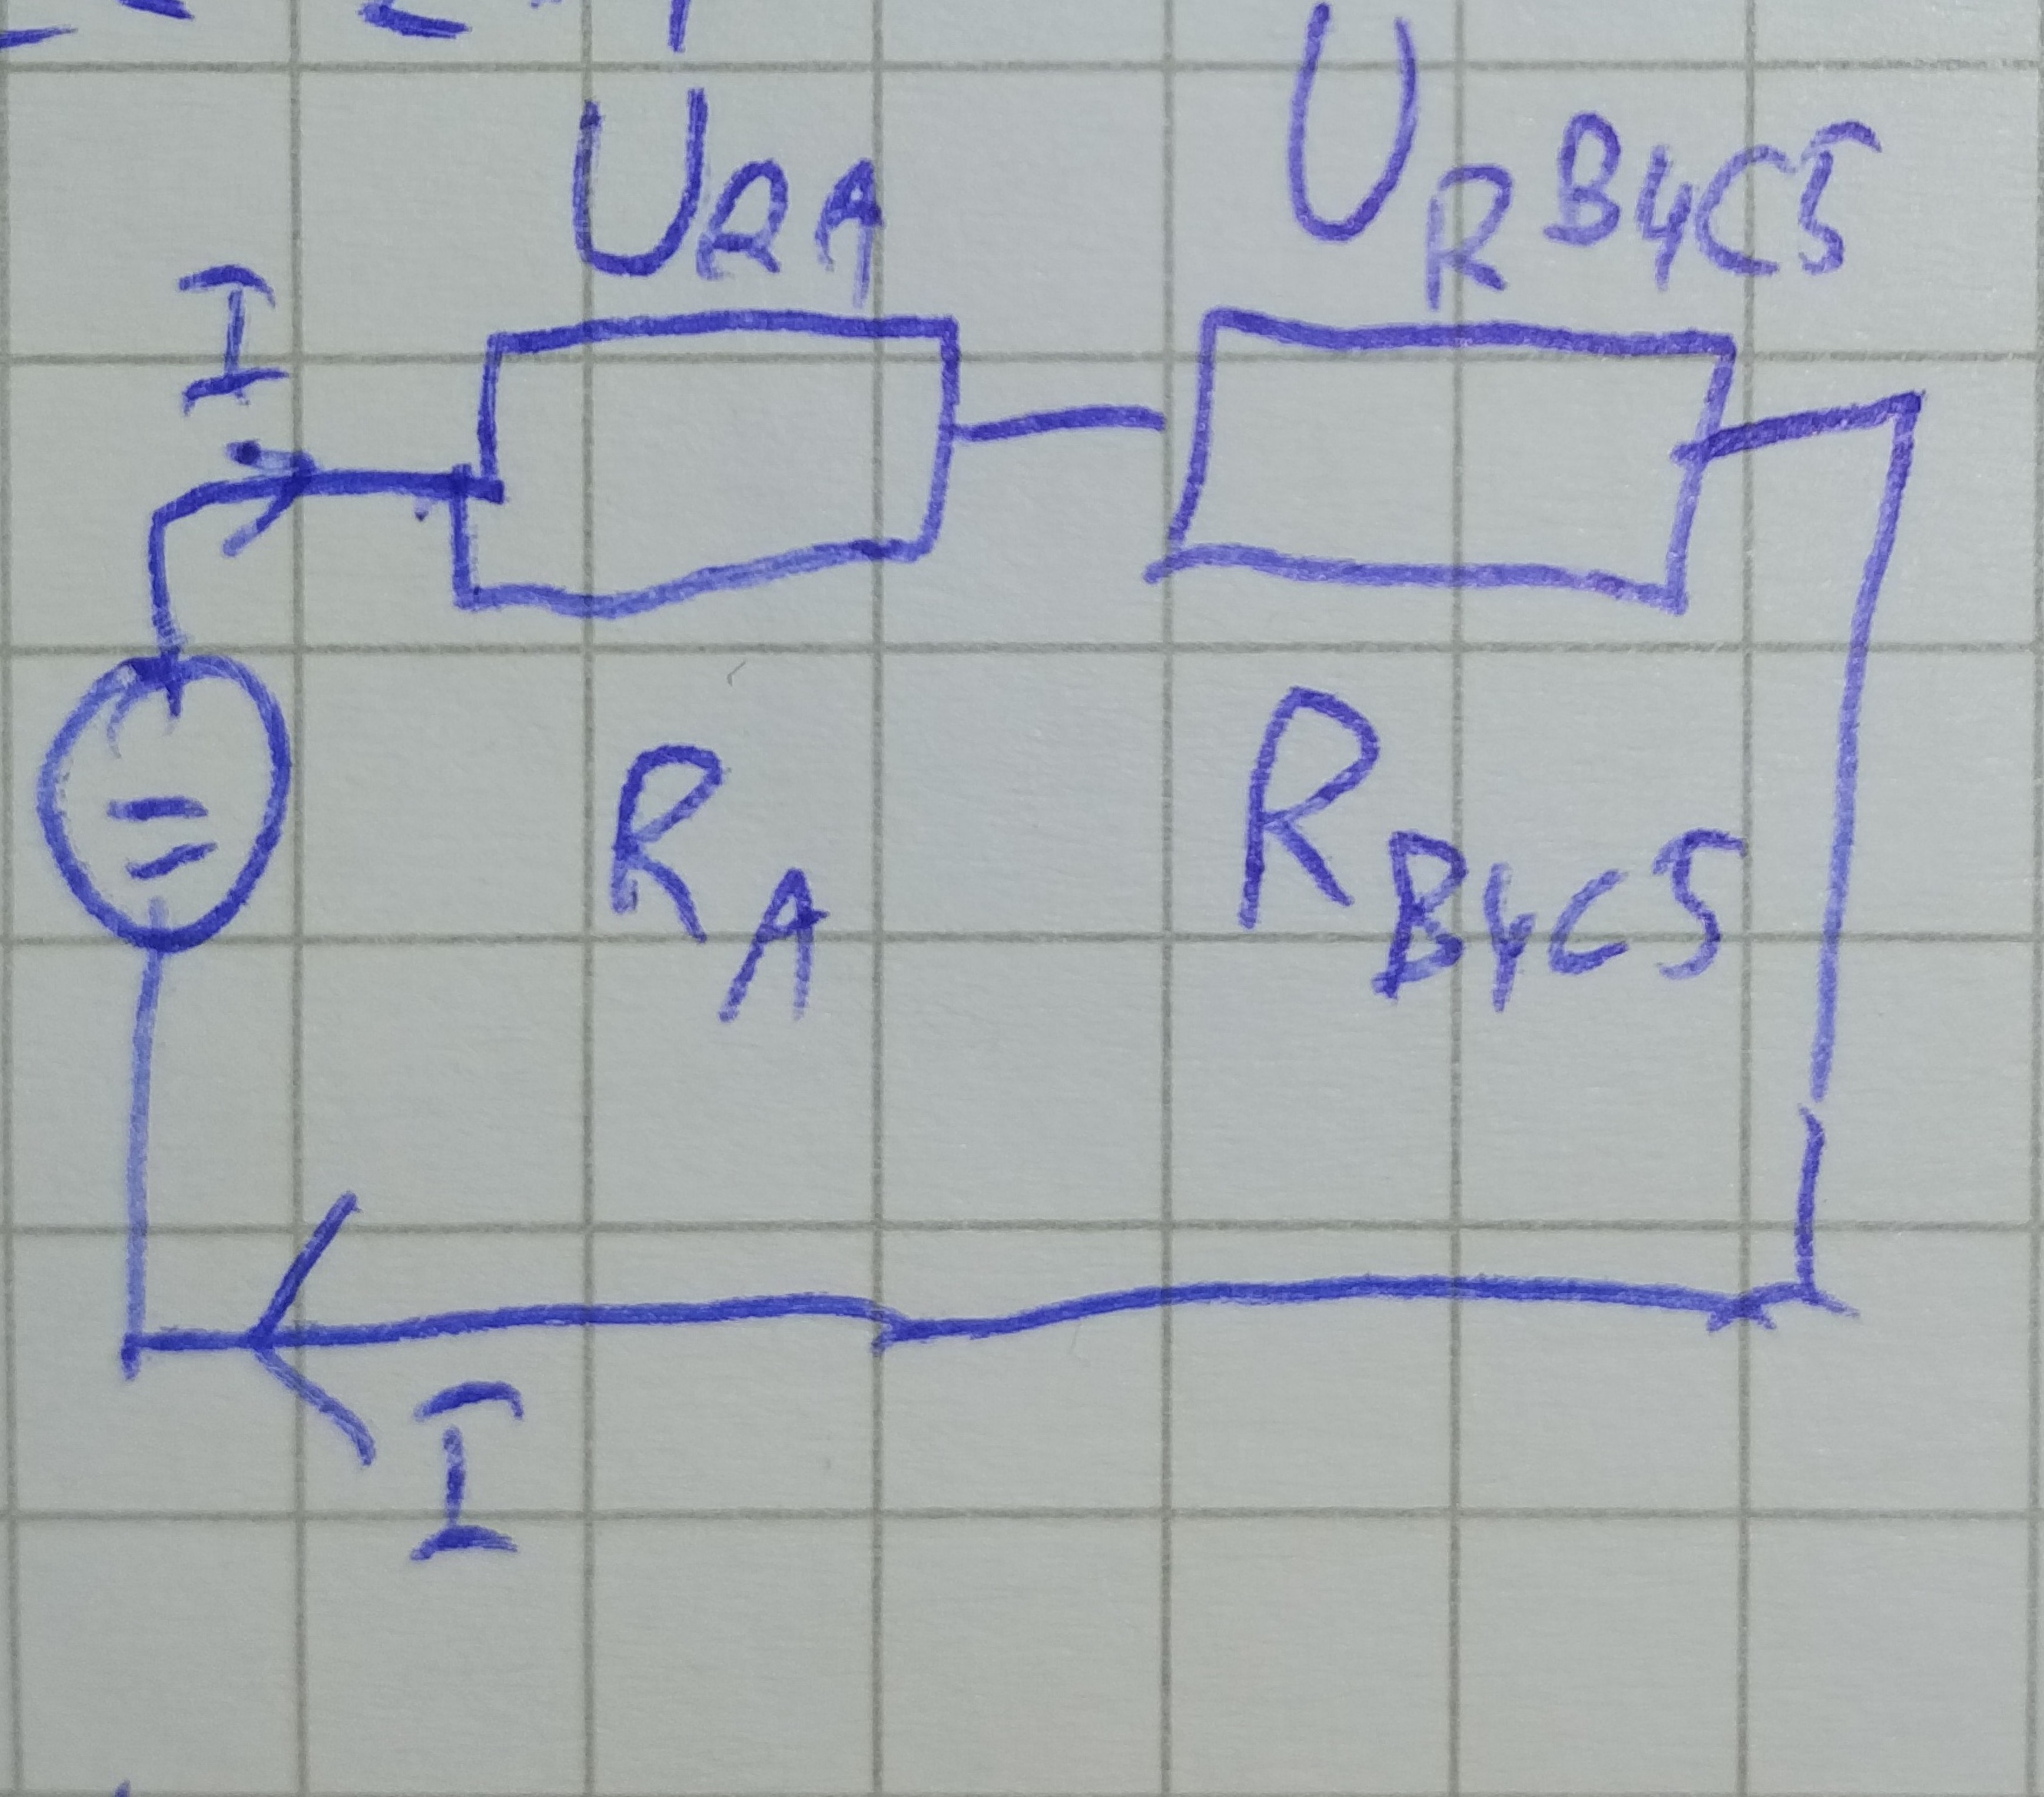 U_RA U_RB4C5
I
=
R_A R_B4C5
I